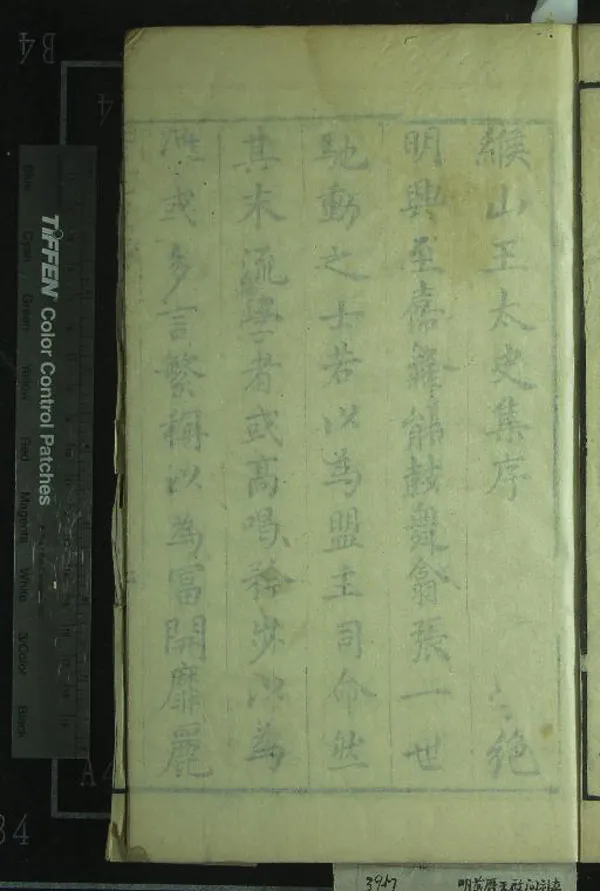 緱山王太史集序
明興至嘉隆能鼓舞翕張一世
馳動之士若以為盟主司命然
其末流學者或高唱矜 以為
雄或多言繁稱以為富開靡麗
絶
TIFFEN Color Control Patches
Blue Cyan Green Yellow Red Magenta White 3/Color Black
B4
4
A4
34
3917